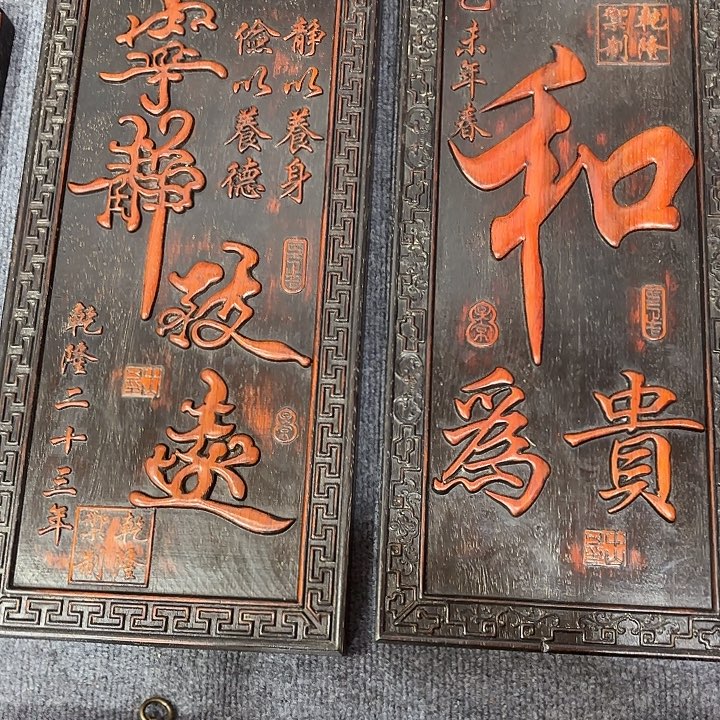 静以養身
儉以養德
寧靜致遠
乾隆二十三年
乾隆
禦制
乾隆
禦制
和
爲貴
未年春